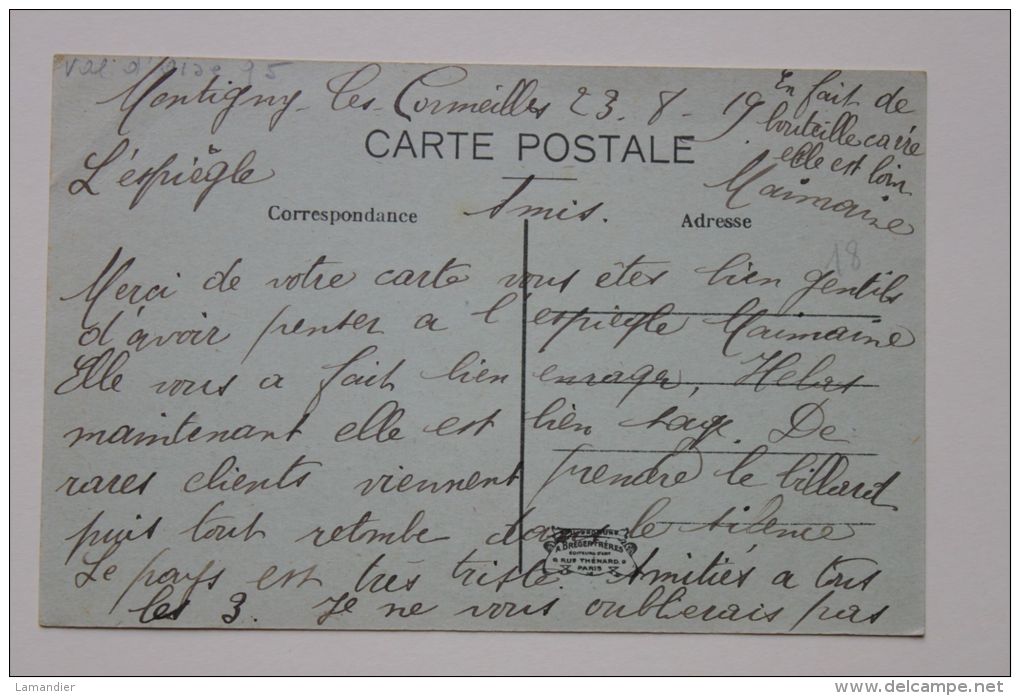 Val d'Oise 95
Montigny-les-Cormeilles 23-8-19
En fait de
bouteille carré
elle est loin
CARTE POSTALE
L'éspiègle
Maimaine
Correspondance
Amis.
Adresse
18
Merci de votre carte vous êtes bien gentils
d'avoir penser a l'espiègle Maimaine
Elle vous a fait bien enrager, Helas
maintenant elle est bien sage. De
rares clients viennent prendre le billard
puis tout retombe dans le silence
Le pays est très triste. Amitiés a tous
les 3. Je ne vous oublierais pas
A. BREGER FRÈRES
EDITEURS D'ART
9 RUE THÉNARD. 9
PARIS
Lamandier
www.delcampe.net